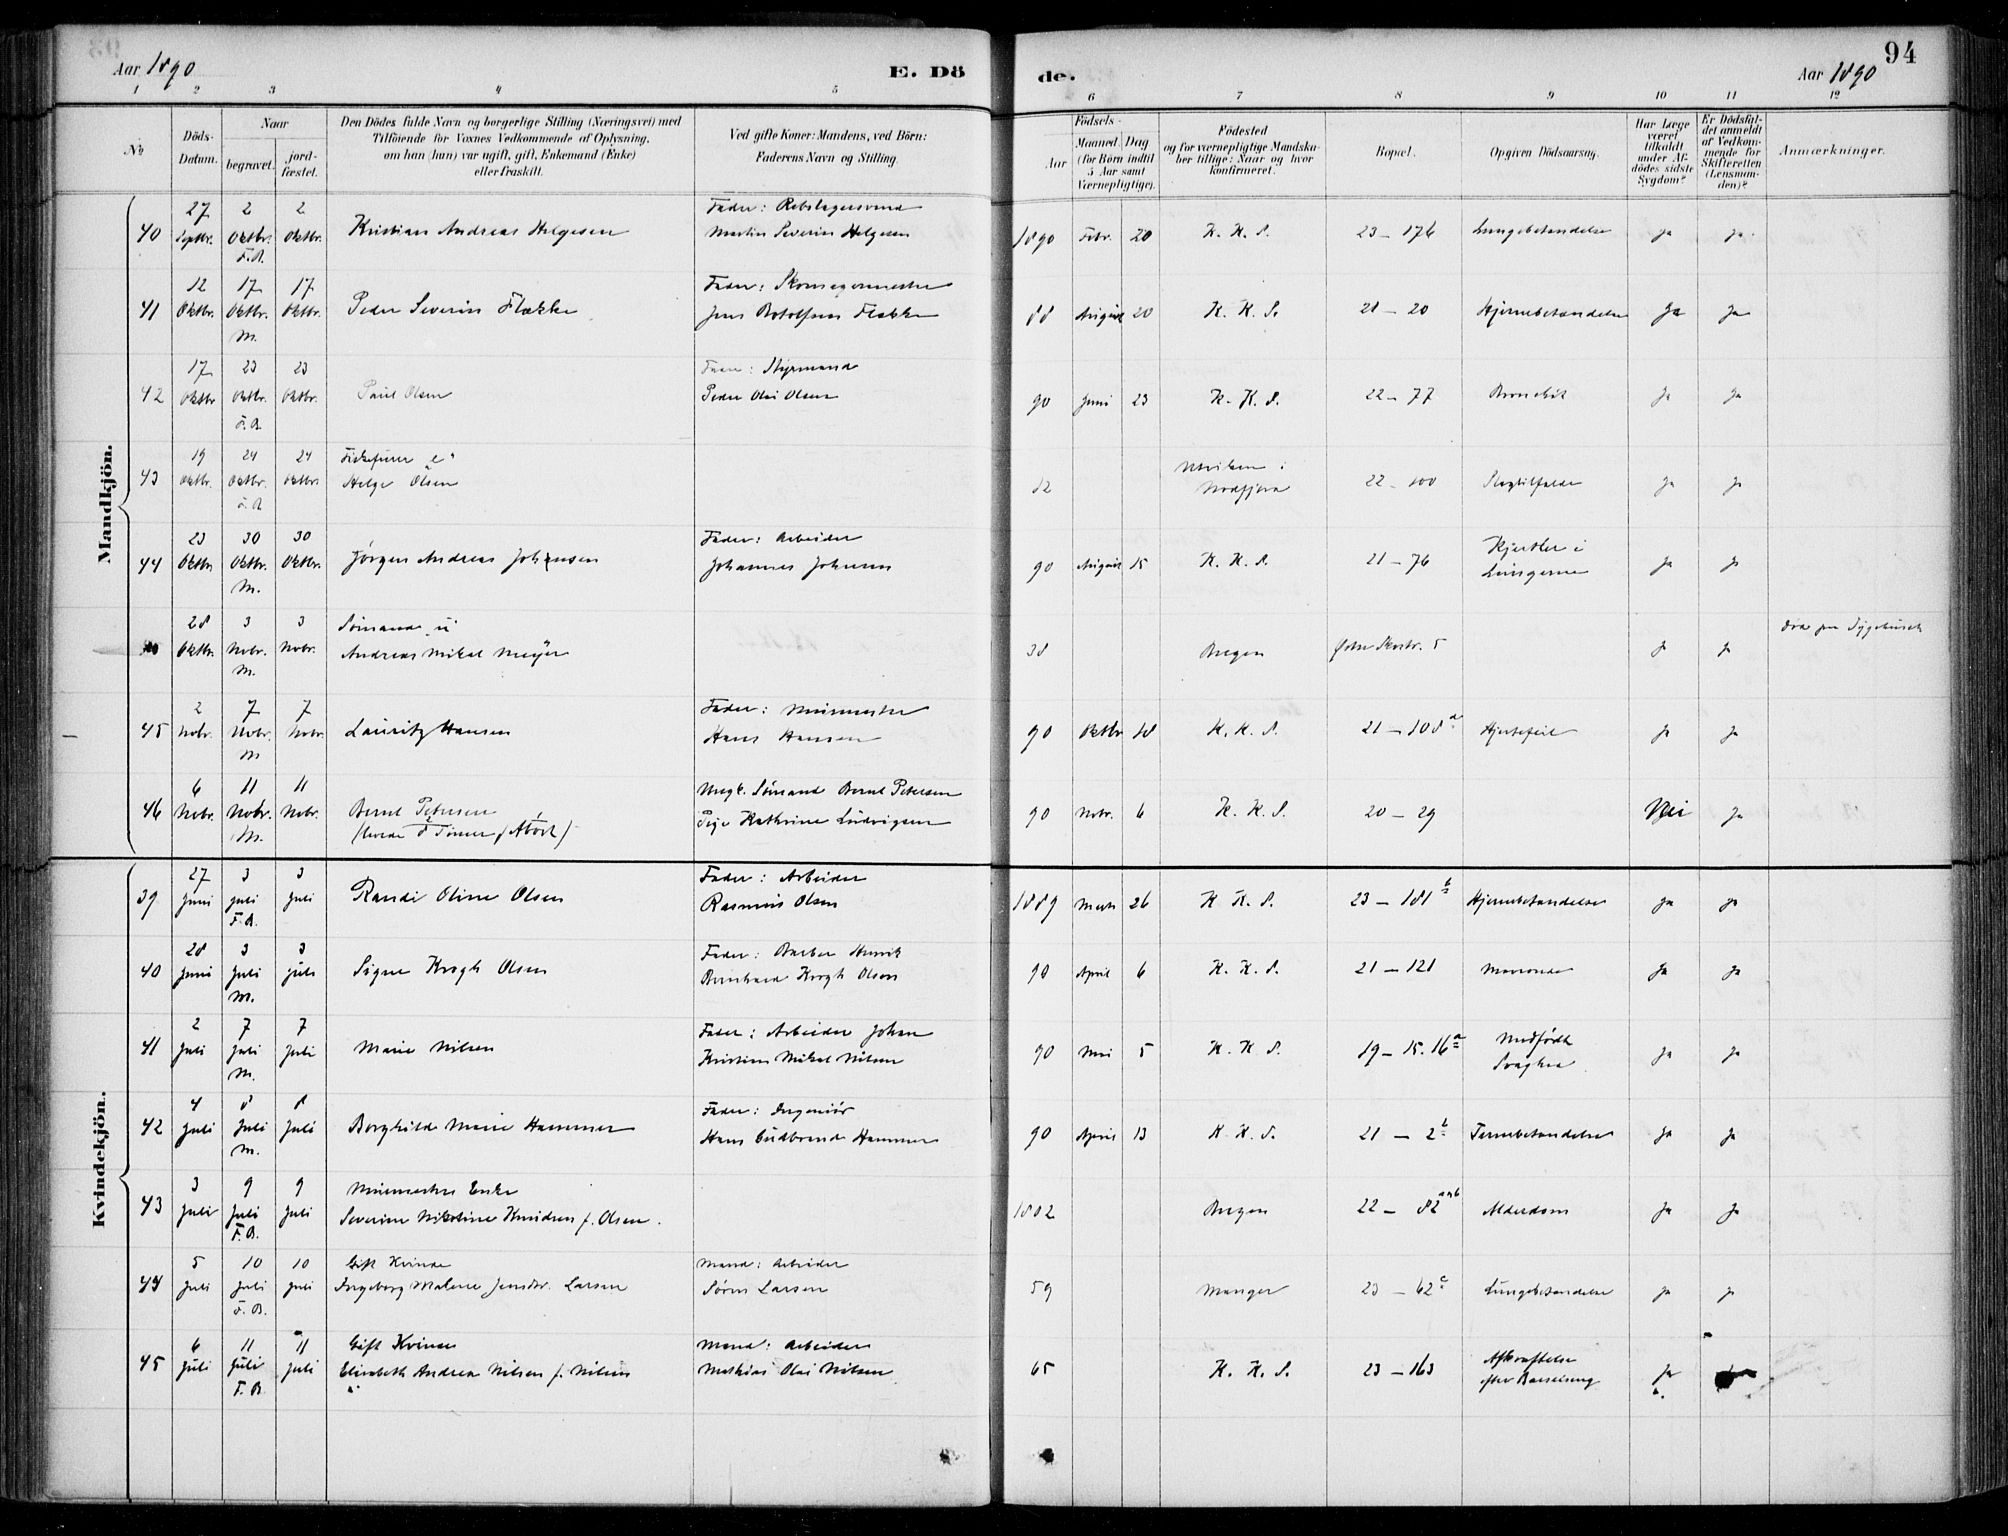 94
Aar 1890
E. Dö
de.
Aar 1890
1 2 3 4 5 6 7 8 9 10 11 12
No
Döds-
Datum.
Naar
begravet.
jord-
fæstet.
Den Dödes fulde Navn og borgerlige Stilling (Næringsvei) med
Tilföiende for Voxnes Vedkommende af Oplysning,
om han (hun) var ugift, gift, Enkemand (Enke)
eller fraskilt.
Ved gifte Koner: Mandens, ved Börn:
Faderens Navn og Stilling.
Födsels-
Aar
Maaned
Dag
(for Börn indtil
5 Aar samt
Værnepligtige).
Födested
og for værnepligtige Mandska-
ber tillige: Naar og hvor
konfirmeret.
Bopæl.
Opgiven Dödsaarsag.
Har Læge
været
tilkaldt
under Af-
dödes sidste
Sygdom?
Er Dödsfal-
det anmeldt
af Vedkom-
mende for
Skifteretten
(Lensman-
den)?
Anmærkninger.
Mandkjön.
27 2 2 Fader: Rebslagersvend
40 Septbr. Oktbr. Oktbr. Kristian Andreas Helgesen Martin Severin Helgesen 1890 Febr. 20 K. K. S. 23 – 176 Lungebetændelse ja ja
F.B.
12 17 17 Fader: Skomagermester
41 Oktbr. Oktbr. Oktbr. Peder Severin Flække Jens Rotolfsen Flække 88 August 20 K. K. S. 21 – 20 Hjernebetændelse Ja Ja
M.
17 23 23 Fader: Styrmand
42 Oktbr Oktbr. Oktbr. Paul Olsen Peder Olai Olsen 90 Juni 23 K. K. S. 22 – 77 Ja Ja
F.B.
19 24 24
43 Oktbr. Oktbr. Oktbr. Helge Olsen 12 Nordfjord 22 – 100 Slagtilfælde Ja Ja
F.B.
23 30 30 Fader: Arbeider Kjertler i
44 Oktbr. Oktbr. Oktbr. Jørgen Andreas Johansen Johannes Johnsen 90 August 15 K. K. S. 21 – 76 Lungerne Ja Ja
M.
28 3 3 Sømand u
Oktbr. Novbr. Novbr. Andreas Mikal Meyer 38 Bergen 5 Ja Ja Død paa Sygehuset
M.
2 7 7 Fader: Murmester
45 Novbr. Novbr. Novbr. Lauritz Hansen Hans Hansen 90 Oktbr 18 K. K. S. 21 – 108 a Hjertefeil Ja Ja
M
6 11 11 Ungk. Sømand Bernt Petersen
46 Novbr. Novbr. Novbr. Bernt Petersen Pige Kathrine Ludvigsen 90 Novbr. 6 K. K. S. 20 – 29 Nei Ja
M. (levede 8 Timer) (Abort)
Kvindekjön.
27 3 3 Fader: Arbeider
39 Juni Juli Juli Randi Oline Olsen Rasmus Olsen 1889 Marts 26 K K. S. 23 – 181 b Hjernebetændelse ja ja
F.B.
28 3 3 Fader: Barber Henrik
40 Juni Juli Juli Signe Krogh Olsen Bernhard Krogh Olsen 90 April 6 K. K. S. 21 – 121 Ja Ja
M.
2 7 7 Fader: Arbeider Johan Medfødt
41 Juli Juli Juli Marie Nilsen Kristian Mikal Nilsen 90 Mai 5 K. K S. 19 – 15. 16 a Svaghed Ja Ja
M.
4 8 8 Fader: Ingeniør
42 Juli Juli Juli Borghild Marie Hammer Hans Gudbrand Hammer 90 April 13 K. K. S. 21 – 2 b Tarmebetændelse Ja Ja
M.
3 9 9 Murmesters Enke
43 Juli Juli Juli Severine Nikoline Knudsen f. Olsen. 1802 Bergen 22 – 82 a og b Alderdom Ja Ja
F.B.
5 10 10 Gift Kvinde Mand: Arbeider
44 Juli Juli Juli Ingeborg Malene Jensdtr. Larsen Søren Larsen 59 Manger 23 – 62 c Lungebetændelse Ja Ja
F.B.
6 11 11 Gift Kvinde Mand: Arbeider Afkræftelse
45 Juli Juli Juli Elisabeth Andrea Nilsen f. Nilsen Mathias Olai Nilsen 65 K. K. S. 23 – 163 efter Barselseng Ja
F.B.